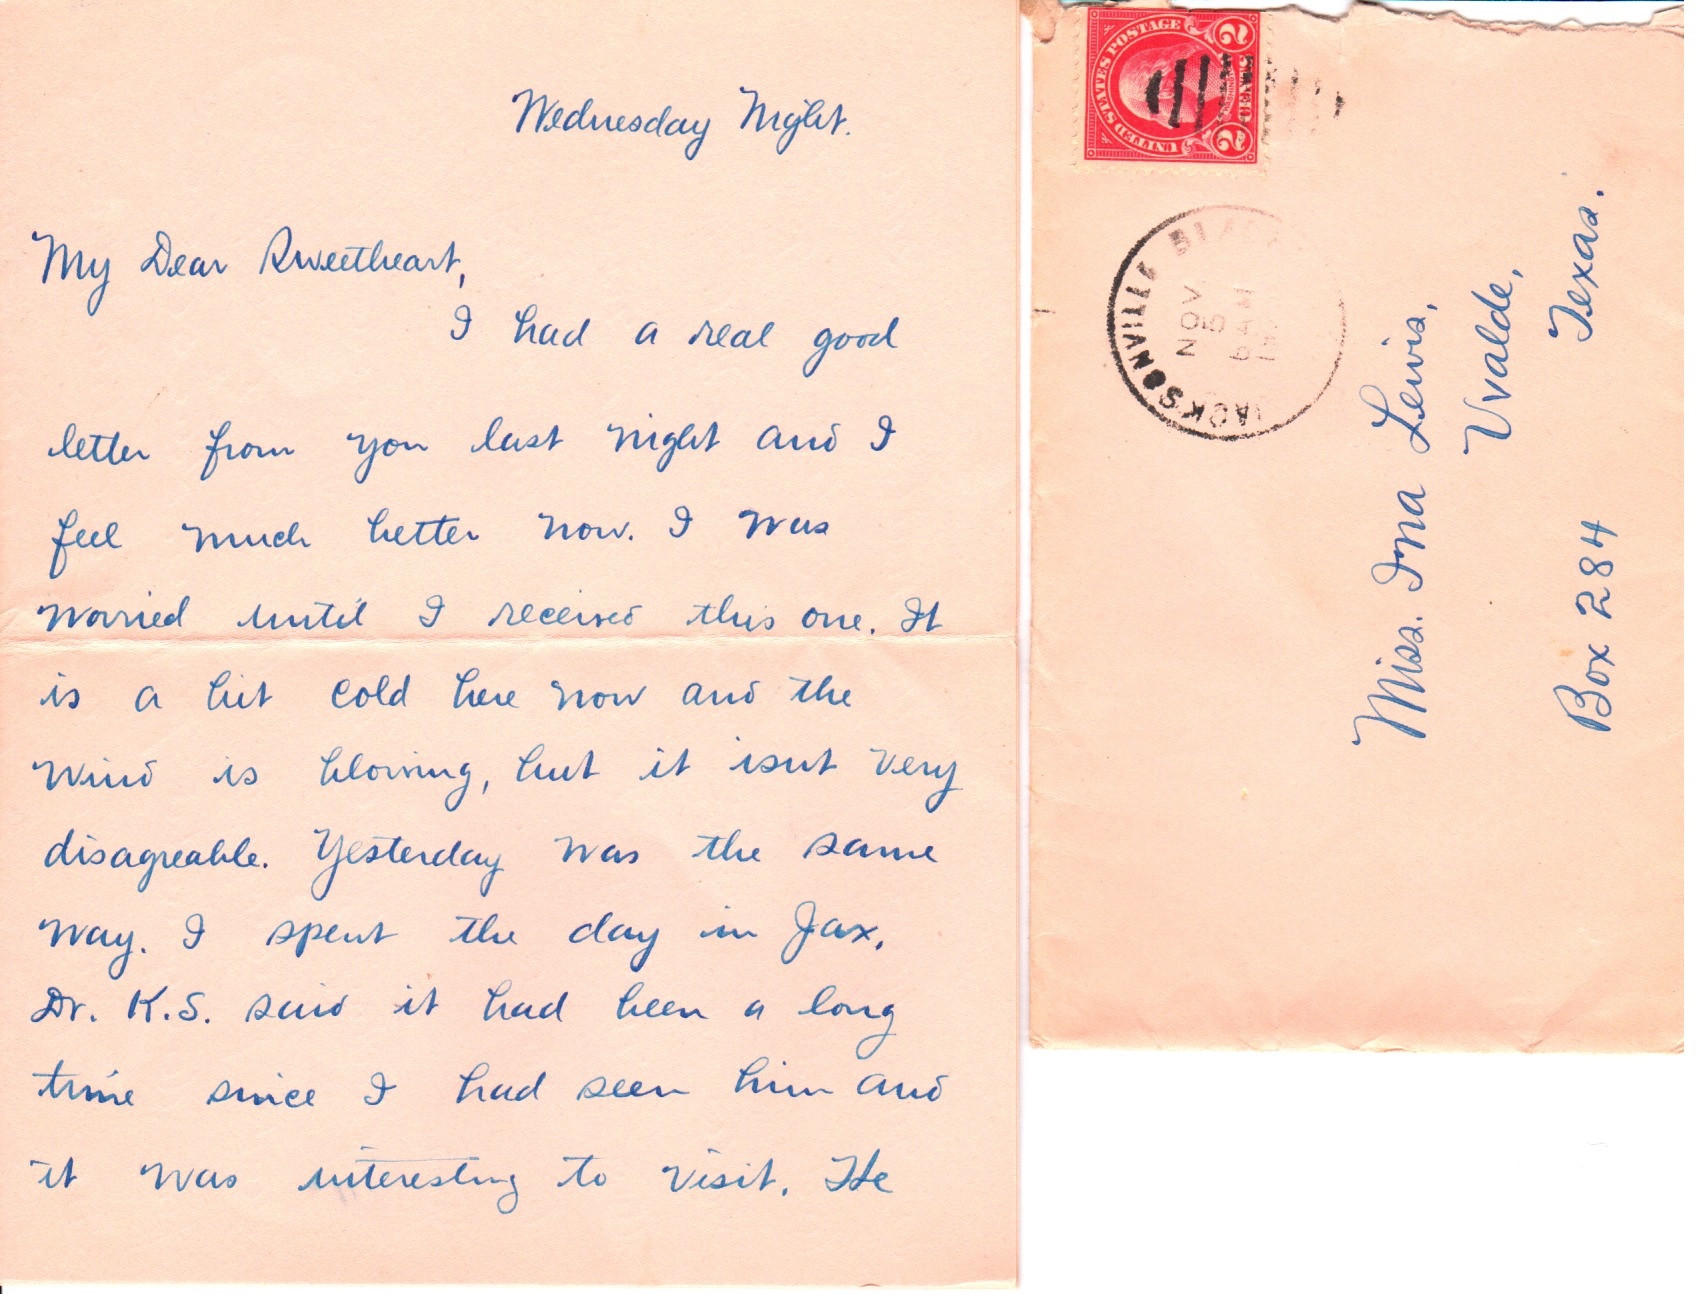 Wednesday Night.
My Dear Sweetheart,
I had a real good
letter from you last night and I
feel much better now. I was
worried until I received this one. It
is a bit cold here now and the
wind is blowing, but it isnt very
disagreable. Yesterday was the same
way. I spent the day in Jax,
Dr. K.S. said it had been a long
time since I had seen him and
it was interesting to visit. He
UNITED STATES POSTAGE
2 2
JACKSONVILLE BEACH
NOV
5
Miss. Ina Lewis,
Uvalde,
Texas.
Box 284